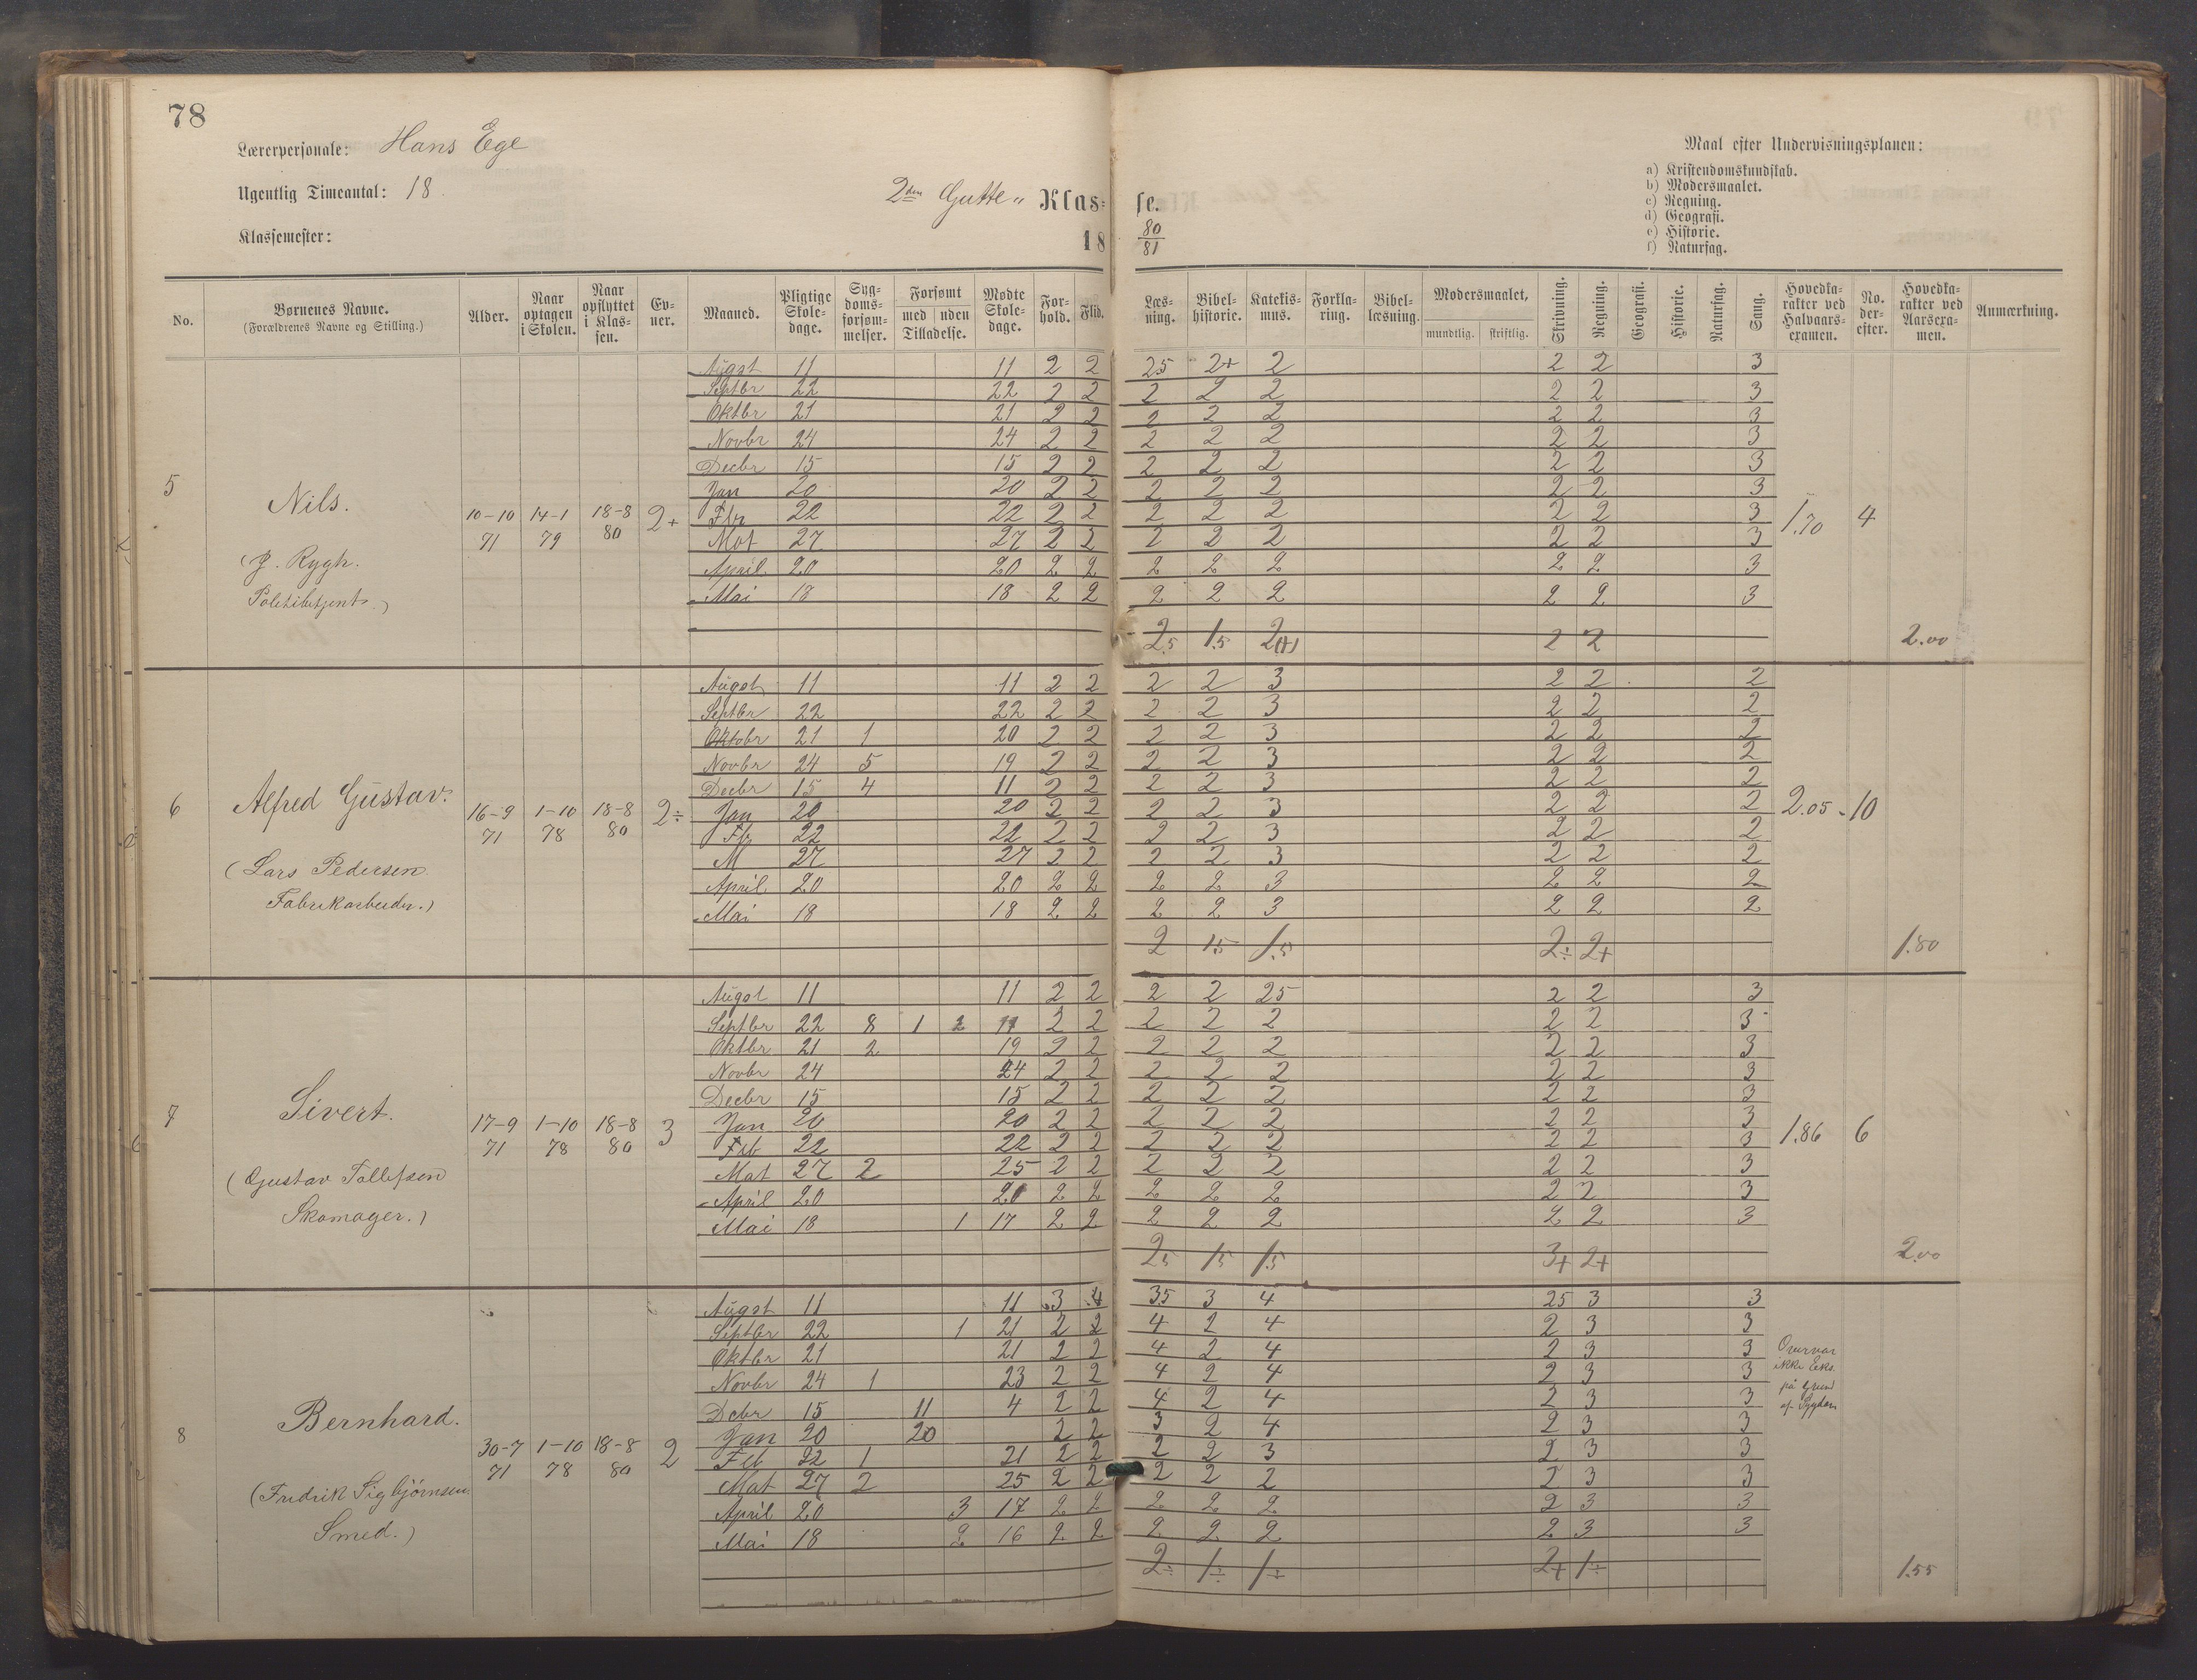 78
Lærerpersonale: Hans Ege
Ugentlig Timeantal: 18
Klassemester:
2den Gutte „ Klasse.
18 80/81
Maal efter Undervisningsplanen:
a) Kristendomskundskab.
b) Modersmaalet.
c) Regning.
d) Geografi.
e) Historie.
f) Naturfag.
No. | Børnenes Navne. (Forældrenes Navne og Stilling.) | Alder. | Naar optagen i Skolen. | Naar opflyttet i Klassen. | Evner. | Maaned. | Pligtige Skoledage. | Sygdomsforsømmelser. | Forsømt med uden Tilladelse. | Mødte Skoledage. | Forhold. | Flid. | Læsning. | Bibelhistorie. | Katekismus. | Forklaring. | Bibellæsning. | Modersmaalet, mundtlig. skriftlig. | Skrivning. | Regning. | Geografi. | Historie. | Naturfag. | Sang. | Hovedkarakter ved Halvaarsexamen. | No. derefter. | Hovedkarakter ved Aarsexamen. | Anmærkning.
5 Nils. (J. Rygh. Politibetjent.) 10-10 71 14-1 79 18-8 80 2+ 1.70 4
Augst 11 11 2 2 25 2+ 2 2 2 3
Septbr 22 22 2 2 2 2 2 2 2 3
Oktbr 21 21 2 2 2 2 2 2 2 3
Novbr 24 24 2 2 2 2 2 2 2 3
Decbr 15 15 2 2 2 2 2 2 2 3
Jan 20 20 2 2 2 2 2 2 2 3
Fbr 22 22 2 2 2 2 2 2 2 3
Mat 27 27 2 2 2 2 2 2 2 3
April 20 20 2 2 2 2 2 2 2 3
Mai 18 18 2 2 2 2 2 2 2 3
2.5 1.5 2(+) 2 2 2.00
6 Alfred Gustav. (Lars Pedersen Fabrikarbeider.) 16-9 71 1-10 78 18-8 80 2÷ 2.05 10
Augst 11 11 2 2 2 2 3 2 2 2
Septbr 22 22 2 2 2 2 3 2 2 2
Oktobr 21 1 20 2 2 2 2 3 2 2 2
Novbr 24 5 19 2 2 2 2 3 2 2 2
Decbr 15 4 11 2 2 2 2 3 2 2 2
Jan 20 20 2 2 2 2 3 2 2 2
Fb 22 22 2 2 2 2 3 2 2 2
M 27 27 2 2 2 2 3 2 2 2
April 20 20 2 2 2 2 3 2 2 2
Mai 18 18 2 2 2 2 3 2 2 2
2 1.5 1.5 2÷ 2+ 1.80
7 Sivert. (Gustav Tollefsen Skomager.) 17-9 71 1-10 78 18-8 80 3 1.86 6
Augst 11 11 2 2 2 2 25 2 2 3
Septbr 22 8 1 2 11 2 2 2 2 2 2 2 3
Oktbr 21 2 19 2 2 2 2 2 2 2 3
Novbr 24 24 2 2 2 2 2 2 2 3
Decbr 15 15 2 2 2 2 2 2 2 3
Jan 20 20 2 2 2 2 2 2 2 3
Feb 22 22 2 2 2 2 2 2 2 3
Mat 27 2 25 2 2 2 2 2 2 2 3
April 20 20 2 2 2 2 2 2 2 3
Mai 18 1 17 2 2 2 2 2 2 2 3
2.5 1.5 1.5 3+ 2+ 2.00
8 Bernhard. (Fredrik Sigbjørnsen Smed.) 30-7 71 1-10 78 18-8 80 2 Overvar ikke Eks. på Grund af Sygdom
Augst 11 11 3 4 35 3 4 25 3 3
Septbr 22 1 21 2 2 4 2 4 2 3 3
Oktbr 21 21 2 2 4 2 4 2 3 3
Novbr 24 1 23 2 2 4 2 4 2 3 3
Debr 15 11 4 2 2 4 2 4 2 3 3
Jan 20 20 2 2 3 2 4 2 3 3
Feb 22 1 21 2 2 2 2 3 2 3 3
Mat 27 2 25 2 2 2 2 2 2 3 3
April 20 3 17 2 2 2 2 2 2 3 3
Mai 18 2 16 2 2 2 2 2 2 3 3
2÷ 1÷ 1÷ 2+ 1÷ 1.55